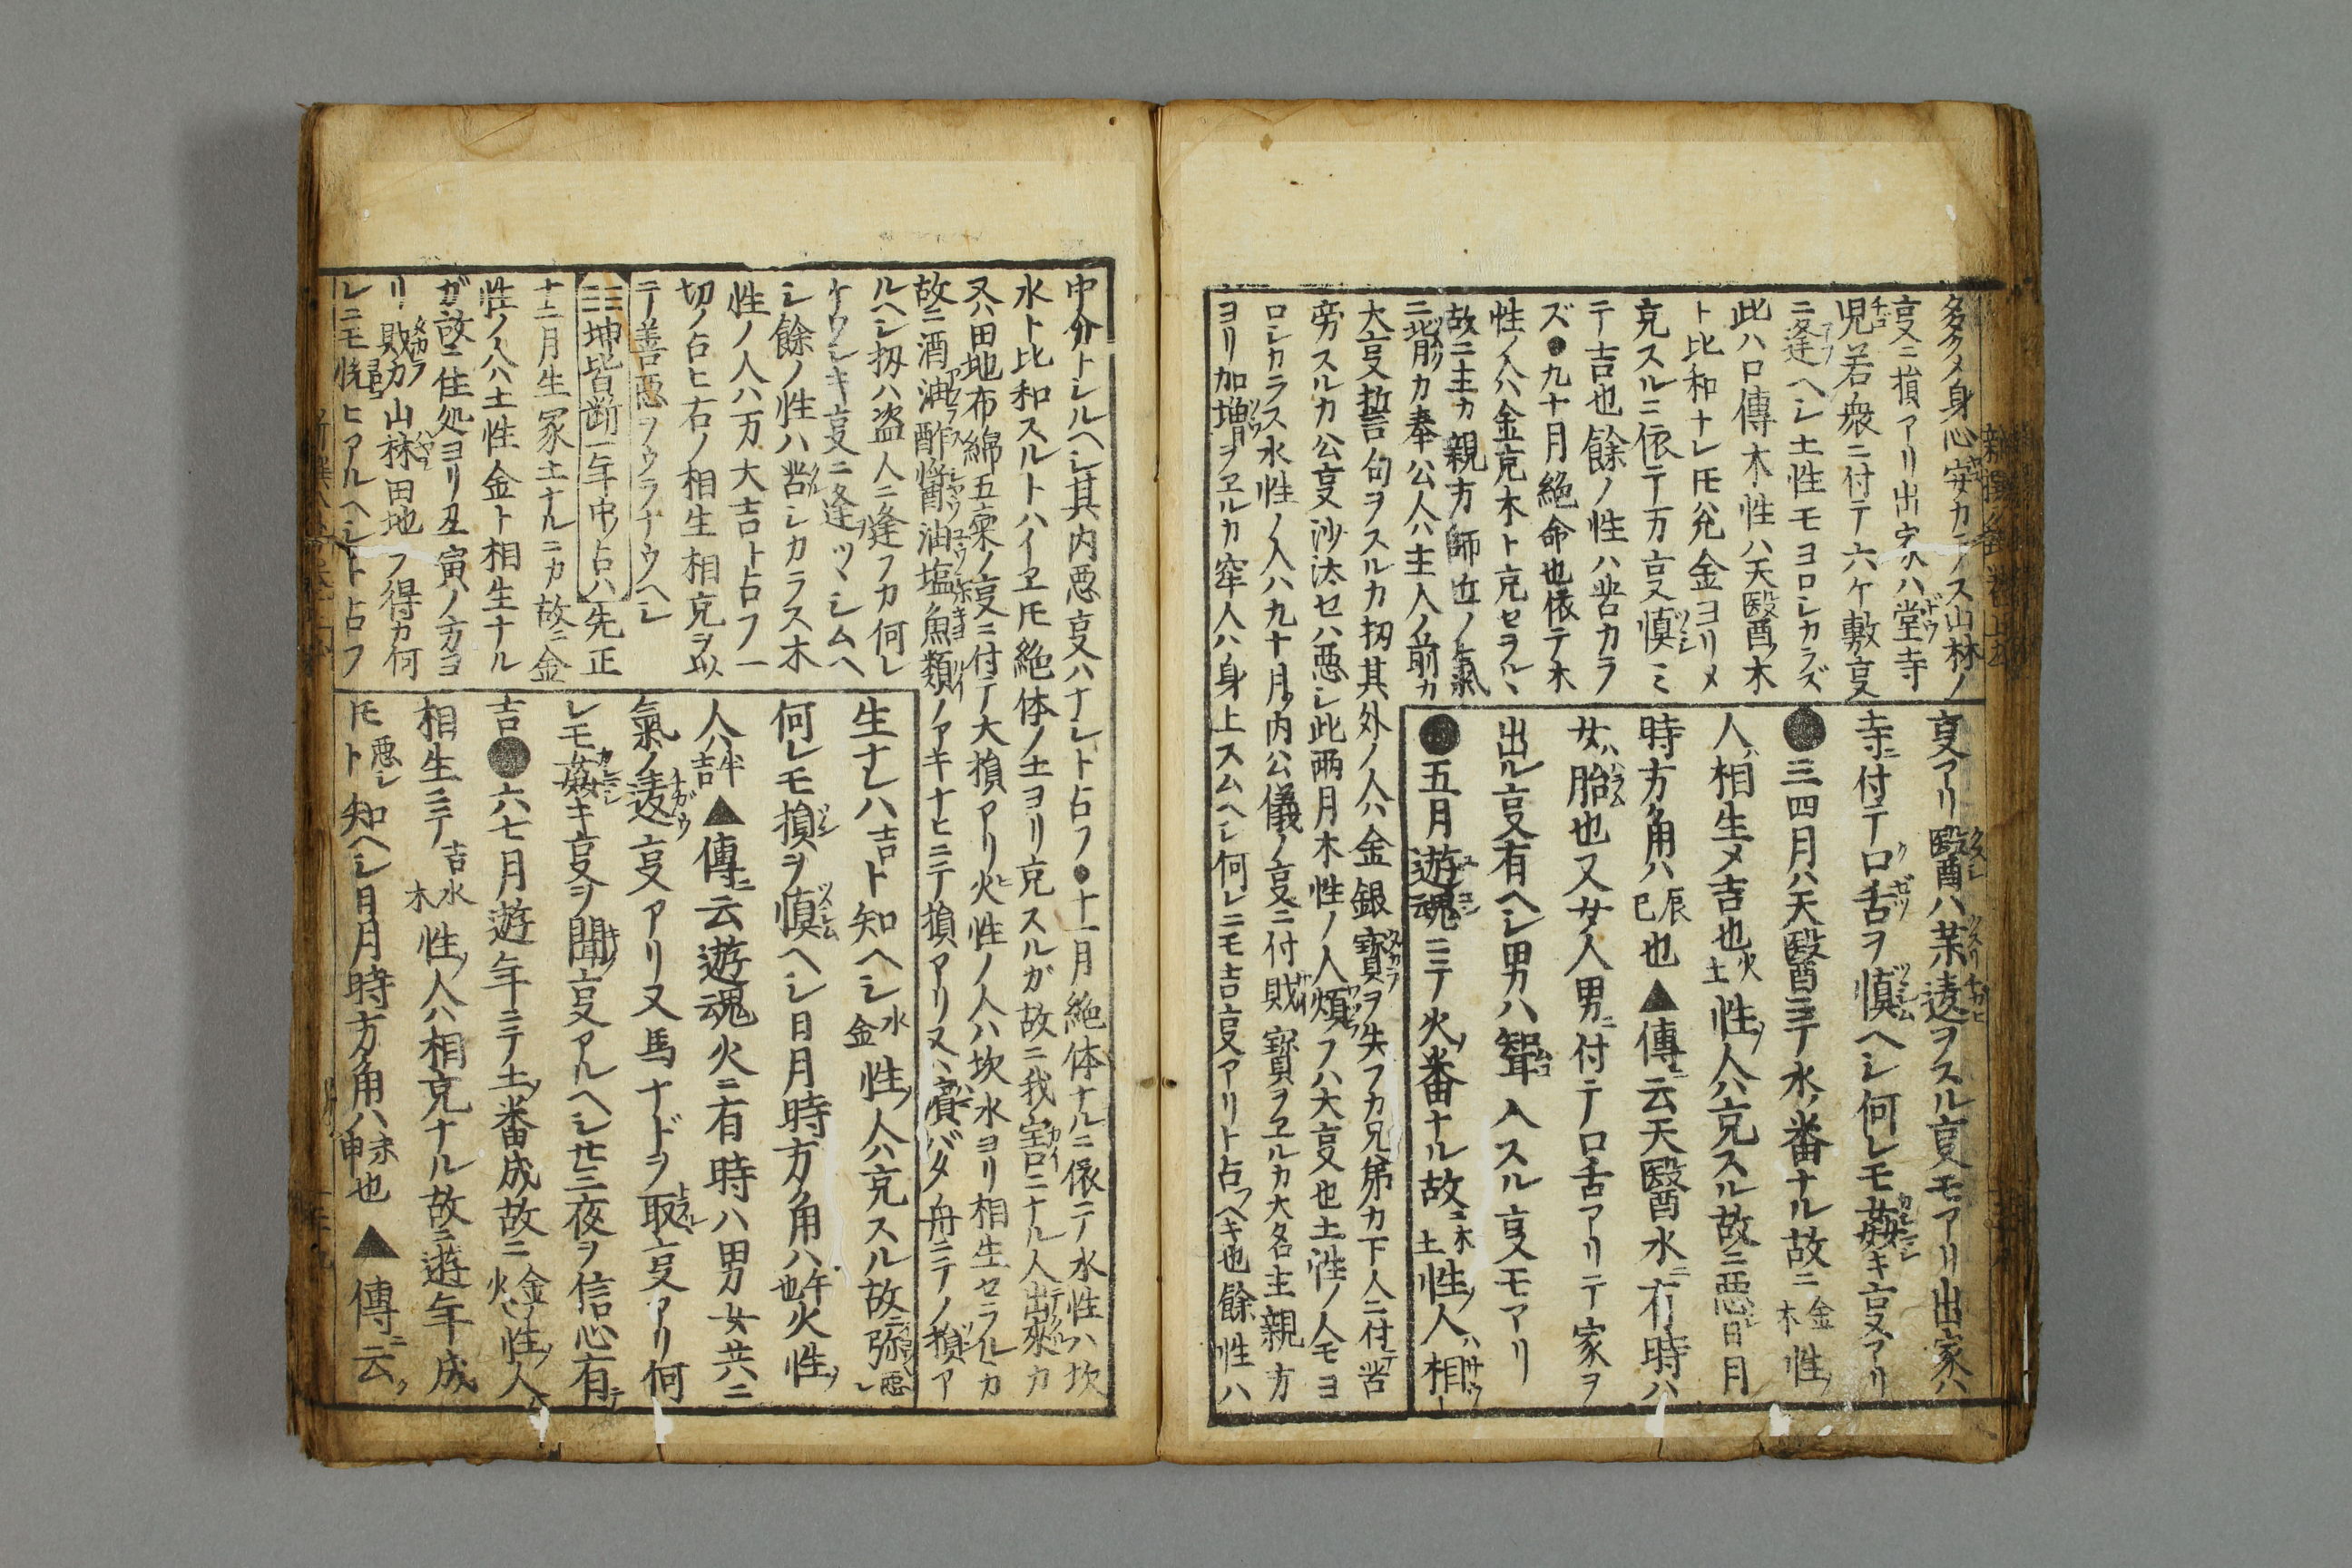 多クメ身心安カラス山林ノ
亰ニ損アリ出家ハ堂寺
児若衆ニ付テ六ケ敷亰
ニ逢ヘシ土性モヨロシカラズ
此ハ口傳木性ハ天醫ノ木
ト比和ナレ𪜈兊金ヨリメ
克スルニ依テ万亰慎ミ
テ吉也餘ノ性ハ苦カラ
ズ●九十月絶命也依テ木
性ノ人ハ金克木ト克セラル丶
故ニ主カ親方師匠ノ氣
ニ背カ奉公人ハ主人ノ前カ
大亰誓句ヲスルカ扨其外ノ人ハ金銀寳ヲ失フカ兄弟カ下人ニ付テ苦
旁スルカ公亰沙汰セハ悪シ此両月木性ノ人煩フハ大亰也土性ノ人モヨ
ロシカラス水性ノ人ハ九十月ノ内公儀ノ亰ニ付財寳ヲヱルカ大名主親方
ヨリ加増ヲヱルカ牢人ハ身上スムヘシ何レニモ吉亰アリト占フヘキ也餘性ハ
亰アリ醫ハ薬違ヲスル亰モアリ出家ハ
寺ニ付テ口舌ヲ慎ヘシ何レモ姦キ亰アリ
●三四月ハ天醫ニテ水ノ番ナル故ニ金木性ノ
人ハ相生メ吉也火土性ノ人ハ克スル故ニ悪シ日月
時方角ハ辰巳也▲傳ニ云天醫水ニ有時ハ
女ハ胎也又女人男ニ付テ口舌アリテ家ヲ
出ル亰有ヘシ男ハ聟入スル亰モアリ
●五月遊魂ニテ火ノ番ナル故ニ木土性ノ人ハ相
中分トシルヘシ其内悪亰ハナレト占フ●十一月絶体ナルニ依テ水性ハ坎
水ト比和スルトハイヱ𪜈絶体ノ土ヨリ克スルガ故ニ我害ニナル人出來カ
又ハ田地布綿五穀ノ亰ニ付テ大損アリ火性ノ人ハ坎水ヨリ相生セラルヽカ
故ニ酒油酢醤油塩魚類ノアキナヒニテ損アリ又ハ濱バタ舟ニテノ損ア
ルヘシ扨ハ盗人ニ逢フカ何レ
ケワシキ亰ニ逢ツヽシムヘ
シ餘ノ性ハ苦シカラス木
性ノ人ハ万大吉ト占フ一
切ノ占ヒ右ノ相生相克ヲ以
テ善悪ヲウラナウヘシ
☷坤皆断一年中ノ占ハ先正
十二月生家土ナルニカ故ニ金
性ノ人ハ土性金ト相生ナル
ガ故ニ住処ヨリ丑寅ノ方ヨ
リ財カ山林田地ヲ得カ何
レニモ悦ヒアルヘシト占フ
生ナレハ吉ト知ヘシ水金性ノ人ハ克スル故ニ弥悪シ
何レモ損ヲ慎ヘシ日月時方角ハ午也火性ノ
人ハ半吉▲傳ニ云遊魂火ニ有時ハ男女共ニ
氣ノ違亰アリ又馬ナドヲ取亰アリ何
レモ姦キ亰ヲ聞亰アルヘシ廿三夜ヲ信心有テ
吉●六七月遊年ニテ土ノ番成故ニ金火性ノ人ハ
相生ニテ吉水木性ノ人ハ相克ナル故ニ遊年成
𪜈悪シト知ヘシ日月時方角ハ未申也▲傳ニ云ク